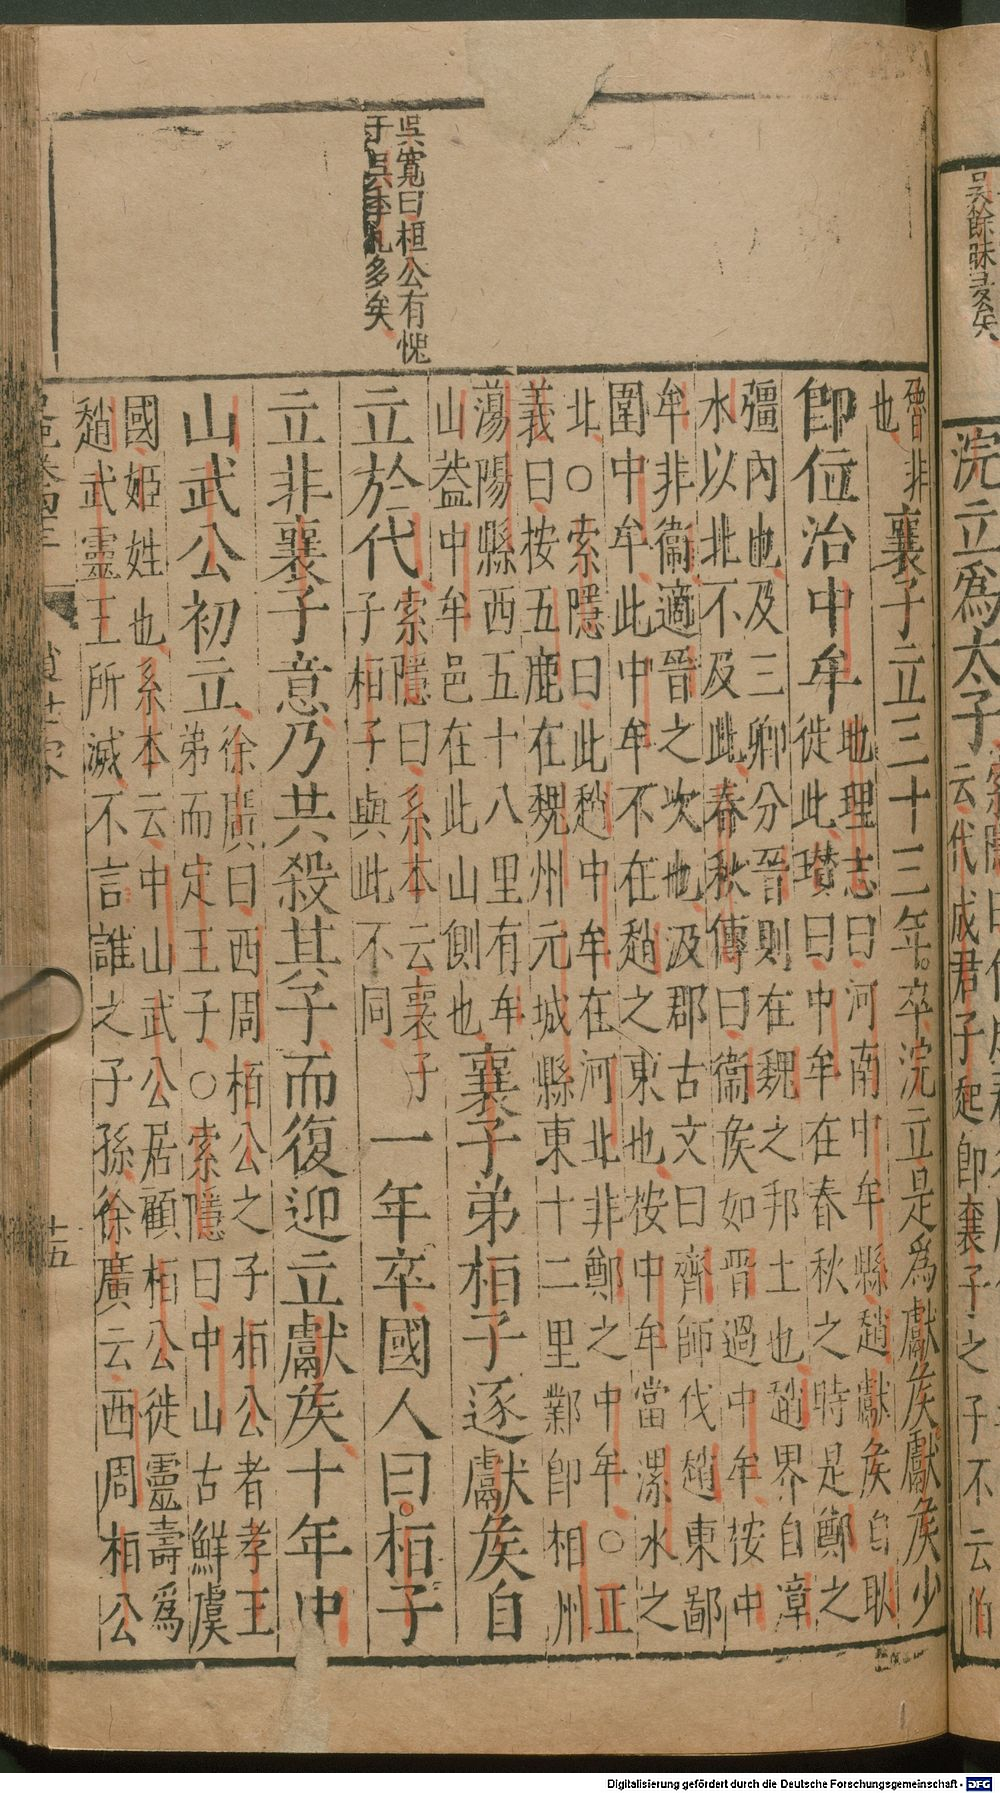 吳餘昧是矣
浣立爲太子
云代成君子起即襄子之子不云伯
吳寬曰桓公有愧
于吳季札多矣
曾非
也
襄子立三十三年卒浣立是爲獻矦獻矦少
即位治中牟
地理志曰河南中牟縣趙獻矦自耿
徙此瓚曰中牟在春秋之時是鄭之
彊內也及三卿分晉則在魏之邦土也趙界自漳
水以北不及此春秋傳曰衞矦如晉過中牟按中
牟非衞適晉之次也汲郡古文曰齊師伐趙東鄙
圍中牟此中牟不在趙之東也按中牟當漯水之
北○索隱曰此趙中牟在河北非鄭之中牟○正
義曰按五鹿在魏州元城縣東十二里鄴即相州
蕩陽縣西五十八里有牟
山蓋中牟邑在此山側也
襄子弟栢子逐獻矦自
立於代
索隱曰系本云襄子
子栢子與此不同
一年卒國人曰栢子
立非襄子意乃共殺其子而復迎立獻矦十年中
山武公初立
徐廣曰西周栢公之子栢公者孝王
弟而定王子○索隱曰中山古鮮虞
國姬姓也系本云中山武公居顧栢公徙靈壽爲
趙武靈王所滅不言誰之子孫徐廣云西周栢公
十五
Digitalisierung gefördert durch die Deutsche Forschungsgemeinschaft - DFG